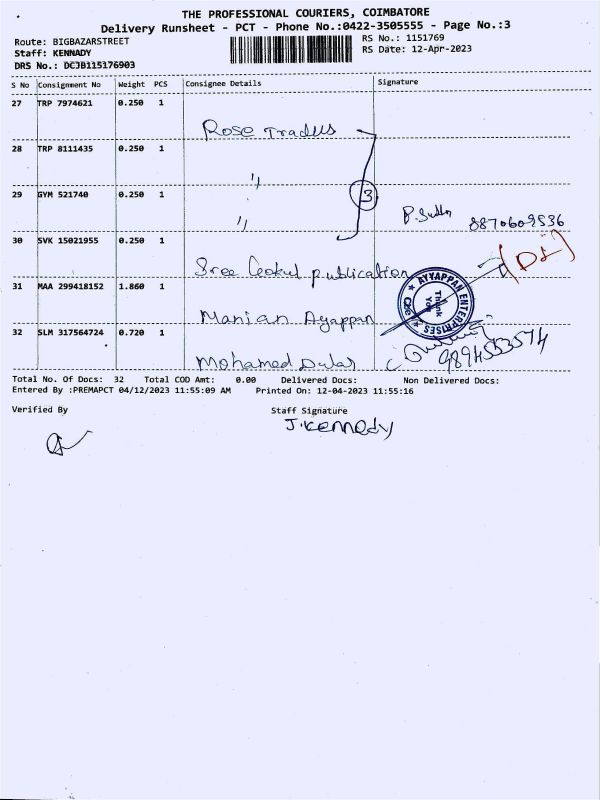 THE PROFESSIONAL COURIERS, COIMBATORE
Delivery Runsheet - PCT - Phone No.:0422-3505555 - Page No.:3
Route: BIGBAZARSTREET
RS No.: 1151769
Staff: KENNADY
RS Date: 12-Apr-2023
DRS No.: DCJB115176903
S No Consignment No Weight PCS Consignee Details Signature
27 TRP 7974621 0.250 1
Rose Traders
28 TRP 8111435 0.250 1
"
29 GYM 521740 0.250 1
" 3
8870609536
30 SVK 15021955 0.250 1
Sree Gokul publication
31 MAA 299418152 1.860 1
AYYAPPAN ENTERPRISES
Thank You
Cbe
Manian Ayappan
32 SLM 317564724 0.720 1
9894553574
Mohamed
Total No. Of Docs: 32 Total COD Amt: 0.00 Delivered Docs: Non Delivered Docs:
Entered By :PREMAPCT 04/12/2023 11:55:09 AM Printed On: 12-04-2023 11:55:16
Verified By Staff Signature
J.Kennedy